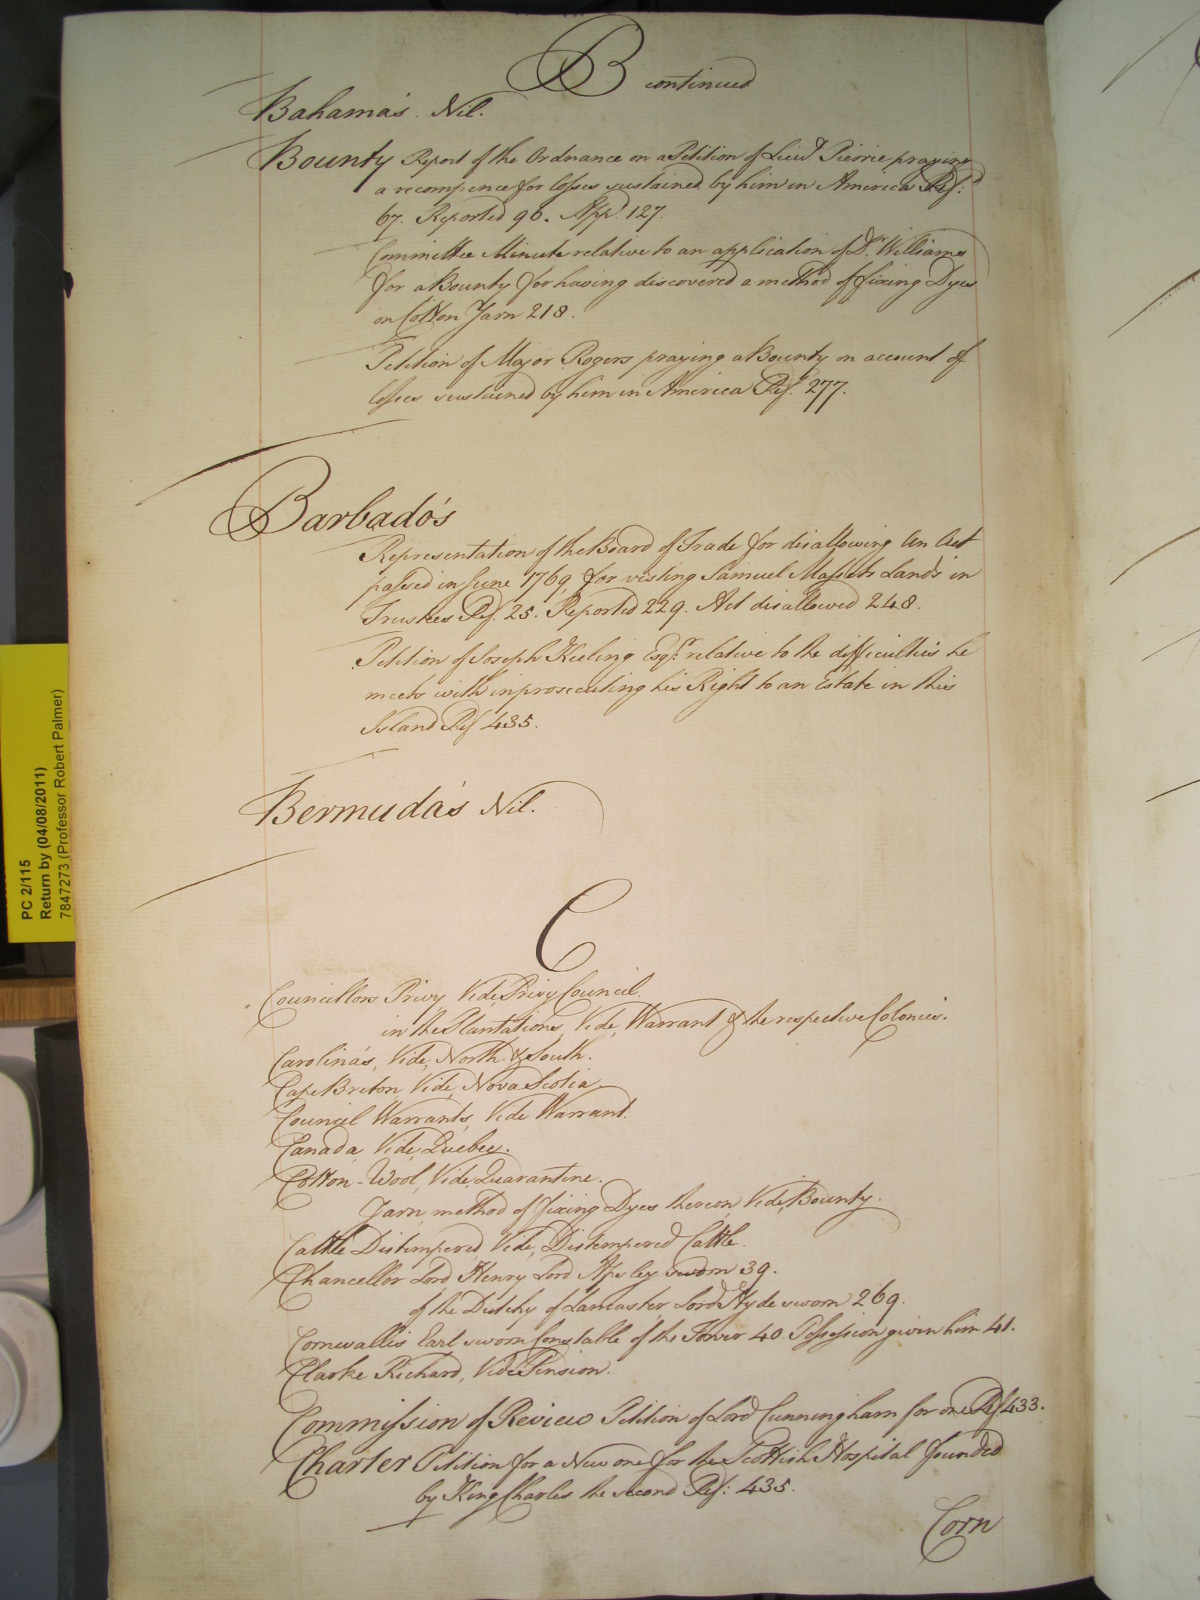 B continued
Bahama's Nil.
Bounty Report of the Ordnance on a Petition of Lieut. Pierrie praying
a recompence for losses sustained by him in America Ref.d
67. Reported 96. App.d 127.
Committee Minute relative to an application of Dr. Williams
for a Bounty for having discovered a method of fixing Dyes
on Cotton Yarn 218.
Petition of Major Rogers praying a Bounty on account of
losses sustained by him in America Ref.d 277.
Barbado's
Representation of the Board of Trade for disallowing An Act
passed in June 1769 for vesting Samuel Lands in
Trustees Ref. 25. Reported 229. Act disallowed 248.
Petition of Joseph Keeling Esqr. relative to the difficulties he
meets with in prosecuting his Right to an Estate in this
Island Ref 435.
Bermuda's Nil.
C
Councillors Privy Vide, Privy Council.
in the Plantations, Vide, Warrant & the respective Colonies.
Carolina's, Vide, North & South.
Cape Breton, Vide, Nova Scotia
Council Warrants, Vide Warrant.
Canada, Vide, Quebec.
Cotton-Wool, Vide, Quarantine.
Yarn, method of fixing Dyes thereon, Vide, Bounty.
Cattle Distempered, Vide, Distempered Cattle.
Chancellor Lord Henry Lord Apsley sworn 39.
of the Dutchy of Lancaster, Lord Hyde sworn 269.
Cornwallis Earl sworn Constable of the Tower 40. Possession given him 41.
Clarke Richard, Vide Pension.
Commission of Review Petition of Lord Cunningham for one Ref. 433.
Charter Petition for a New one for the Scottish Hospital founded
by King Charles the second Ref: 435.
Corn
PC 2/115
Return by (04/08/2011)
7847273 (Professor Robert Palmer)